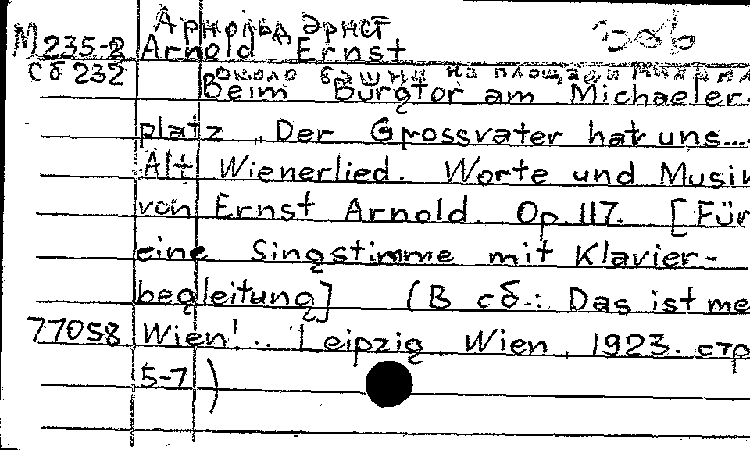 Арнольд Эрнст
М 235-2 Arnold Ernst
Сб 232 около башни на площади
Beim Burgtor am Michaeler-
platz „Der Grossvater hat uns...
Alt Wienerlied. Worte und Musik
von Ernst Arnold. Op. 117. [Für
eine Singstimme mit Klavier-
begleitung] (В сб.: Das ist me
77058 Wien!.. Leipzig Wien, 1923. стр
5-7)